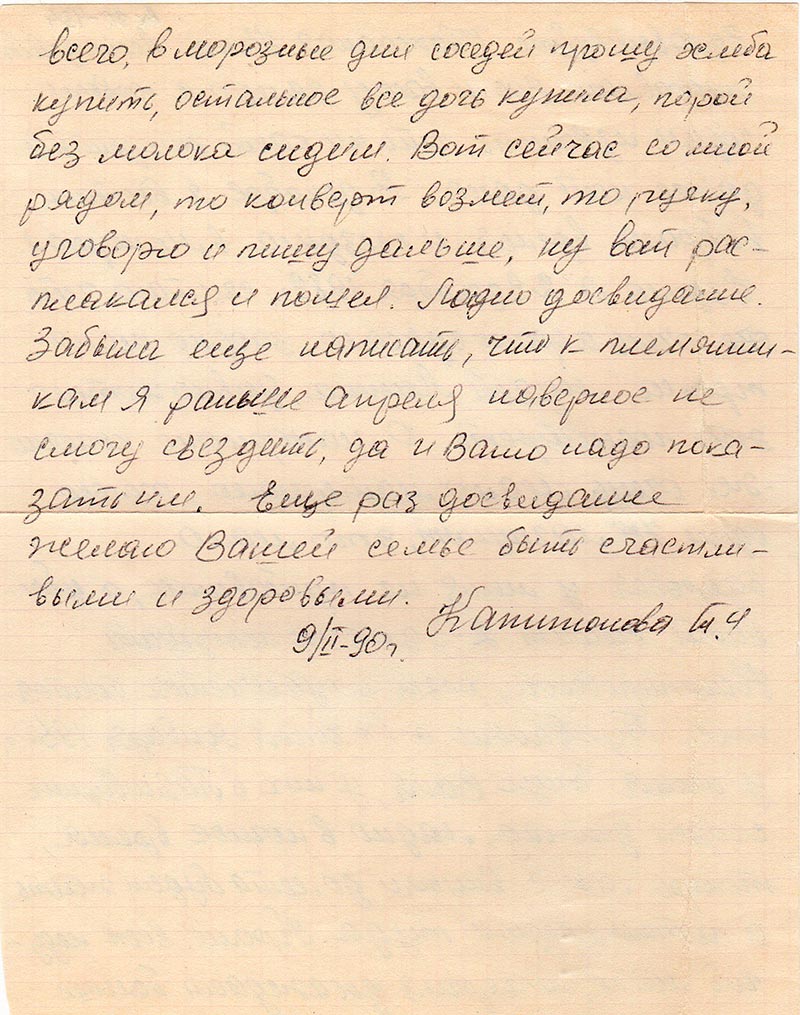 всего, в морозные дни соседей прошу хлеба
купить, остальное все дочь купила, порой
без молока сидим. Вот сейчас со мной
рядом, то конверт возмет, то ручку,
уговорю и пишу дальше, ну вот рас-
плакался и пошел. Ладно досвидание.
Забыла еще написать, что к племянни-
кам я раньше апреля наверное не
смогу съездить, да и Ваню надо пока-
зать им. Еще раз досвидание
желаю Вашей семье быть счастли-
выми и здоровыми.
Капитонова
9/II-90г.